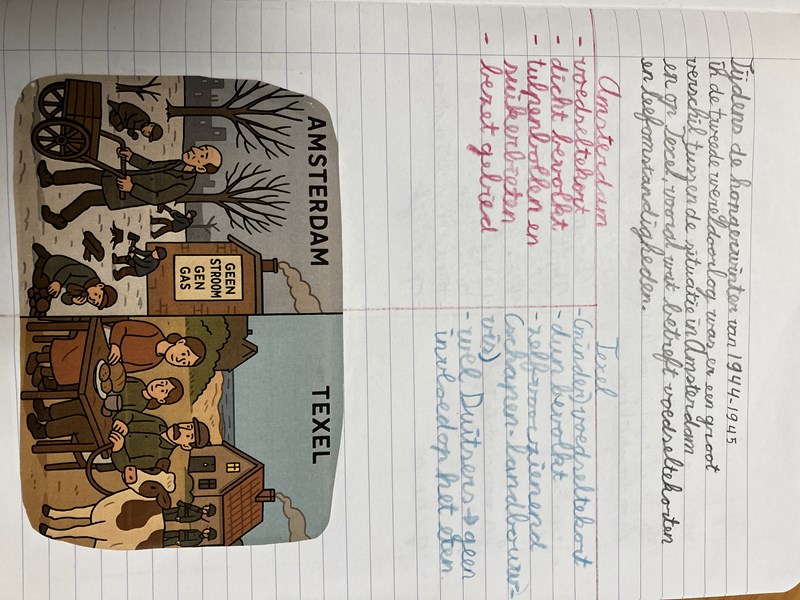 Tijdens de hongerwinter van 1944-1945
in de tweede wereldoorlog was er een groot
verschil tussen de situatie in Amsterdam
en op Texel, vooral wat betreft voedseltekorten
en leefomstandigheden.
Amsterdam
- voedseltekort
- dicht bevolkt
- tulpenbollen en
suikerbieten
- bezet gebied
Texel
- (minder) voedseltekort
- dun bevolkt
- zelfvoorzienend
(schapen-landbouw-
vis)
- wel Duitsers → geen
invloed op het eten.
AMSTERDAM
GEEN
STROOM
GEN
GAS
TEXEL